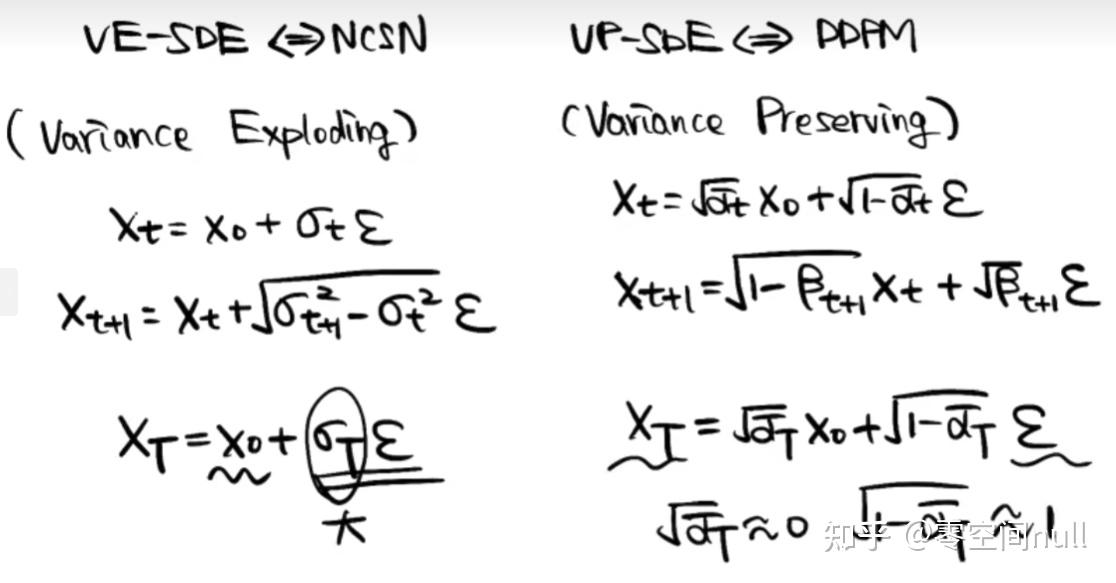 VE-SDE ⇔ NCSN
(Variance Exploding)
X_t = X_0 + σ_t ε
X_{t+1} = X_t + √(σ_{t+1}^2 - σ_t^2) ε
X_T = X_0 + σ_T ε
大
VP-SDE ⇔ DDPM
(Variance Preserving)
X_t = √(ᾱ_t) X_0 + √(1-ᾱ_t) ε
X_{t+1} = √(1-β_{t+1}) X_t + √β_{t+1} ε
X_T = √(ᾱ_T) X_0 + √(1-ᾱ_T) ε
√(ᾱ_T) ≈ 0 √(1-ᾱ_T) ≈ 1
知乎 @零空间null